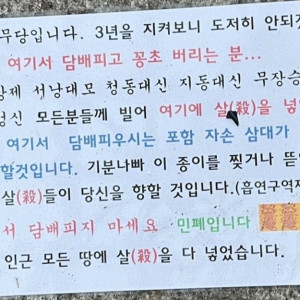 무당입니다. 3년을 지켜보니 도저히 안되
여기서 담배피고 꽁초 버리는 분...
장제 서낭대모 청동대신 지동대신 무장승
성신 모든분들께 빌어 여기에 살(殺)을 넣
여기서 담배피우시는 포함 자손 삼대가
할것입니다. 기분나빠 이 종이를 찢거나 뜯
살(殺)들이 당신을 향할 것입니다.(흡연구역지
서 담배피지 마세요 민폐입니다
인근 모든 땅에 살(殺)을 다 넣었습니다.